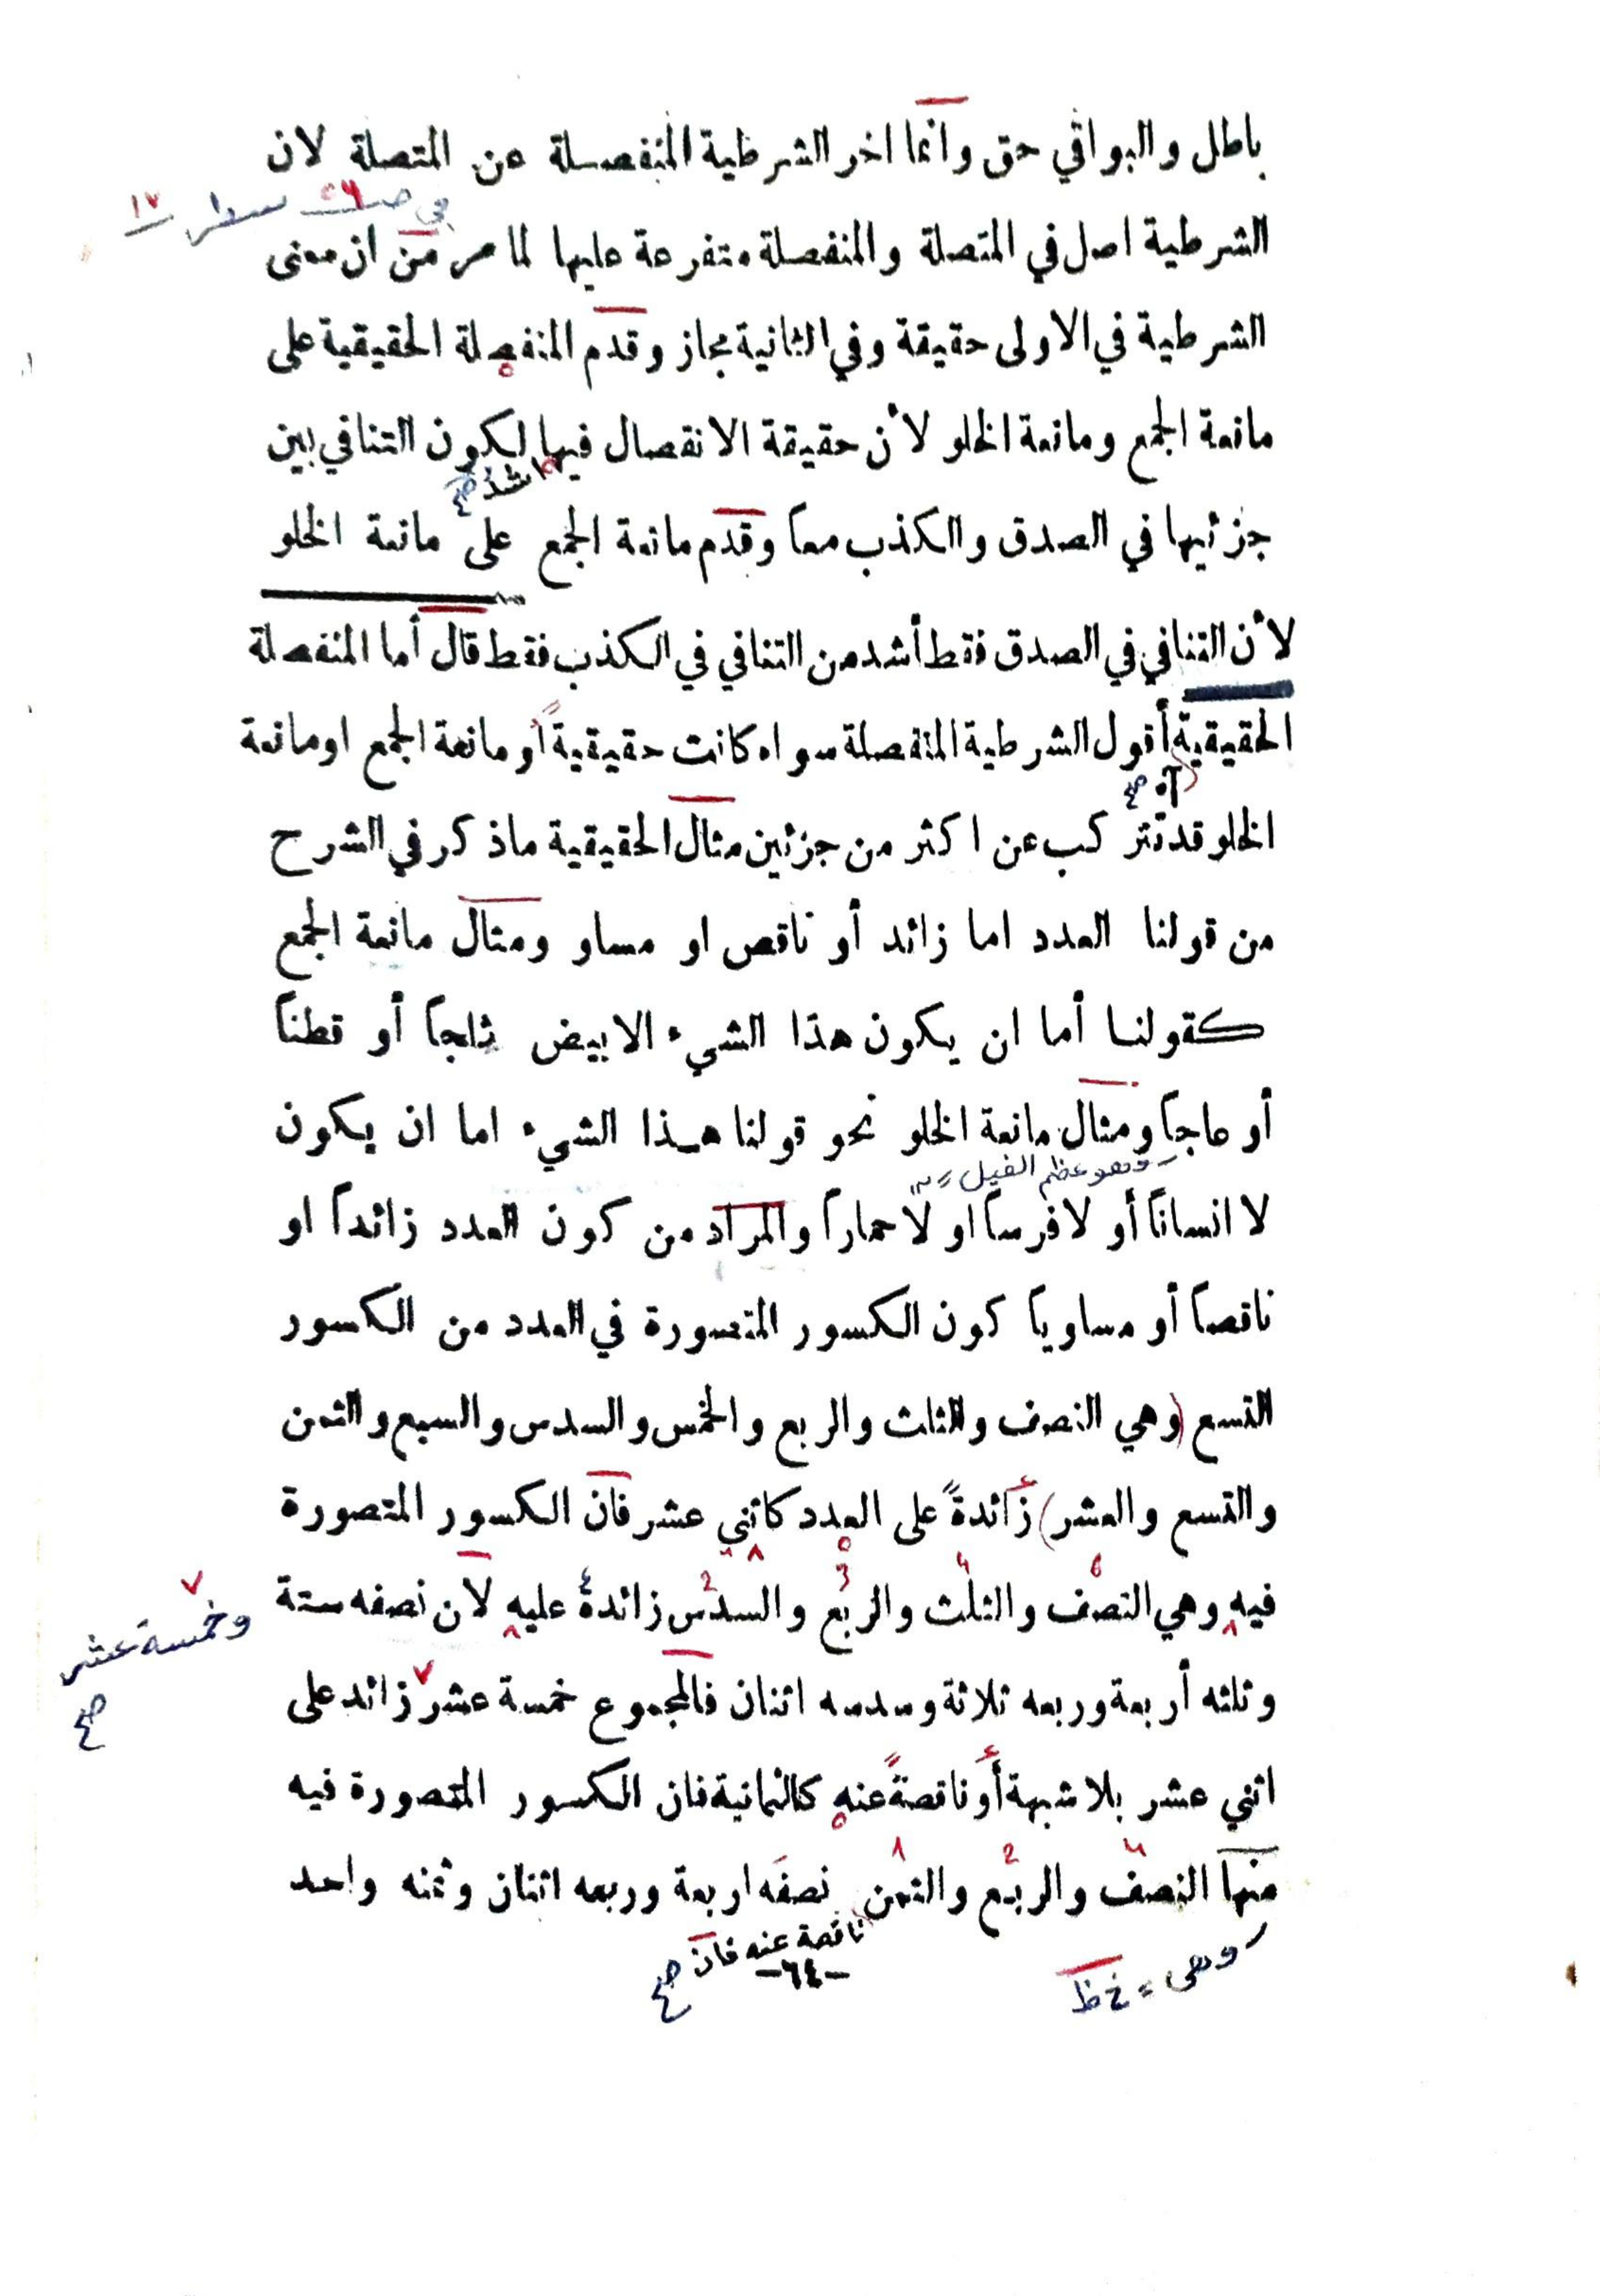 باطل والبواقي حق وانما اخر الشرطية المنفصلة عن المتصلة لان
في ص ٢٦ سطر ١٧
الشرطية اصل في المتصلة والمنفصلة متفرعة عليها لما مر من ان معنى
الشرطية في الاولى حقيقة وفي الثانية مجاز وقدم المنفصلة الحقيقية على
مانعة الجمع ومانعة الخلو لأن حقيقة الانفصال فيها لكون التنافي بين
اشد صح
جزئيها في الصدق والكذب معاً وقدم مانعة الجمع على مانعة الخلو
لأن التنافي في الصدق فقط أشد من التنافي في الكذب فقط قال أما المنفصلة
الحقيقية أقول الشرطية المنفصلة سواء كانت حقيقيةً أو مانعة الجمع او مانعة
آه صح
الخلو قد تتركب عن اكثر من جزئين مثال الحقيقية ماذكر في الشرح
من قولنا العدد اما زائد أو ناقص او مساو ومثال مانعة الجمع
كقولنا أما ان يكون هذا الشيء الابيض ثلجاً أو قطناً
أو عاجاً ومثال مانعة الخلو نحو قولنا هذا الشيء اما ان يكون
وهو عظم الفيل
لا انساناً أو لا فرساً او لا حماراً والمراد من كون العدد زائداً او
ناقصاً أو مساوياً كون الكسور المتصورة في العدد من الكسور
التسع (وهي النصف والثلث والربع والخمس والسدس والسبع والثمن
والتسع والعشر) زائدةً على العدد كاثني عشر فان الكسور المتصورة
فيه وهي النصف والثلث والربع والسدس زائدة عليه لان نصفه ستة
وخمسة عشر
صح
وثلثه أربعة وربعه ثلاثة وسدسه اثنان فالمجموع خمسة عشر زائد على
اثني عشر بلا شبهة أو ناقصةً عنه كالثمانية فان الكسور المتصورة فيه
منها النصف والربع والثمن نصفه اربعة وربعه اثنان وثمنه واحد
ناقصة عنه فان صح
وهى = خ ظ
-٦٤-